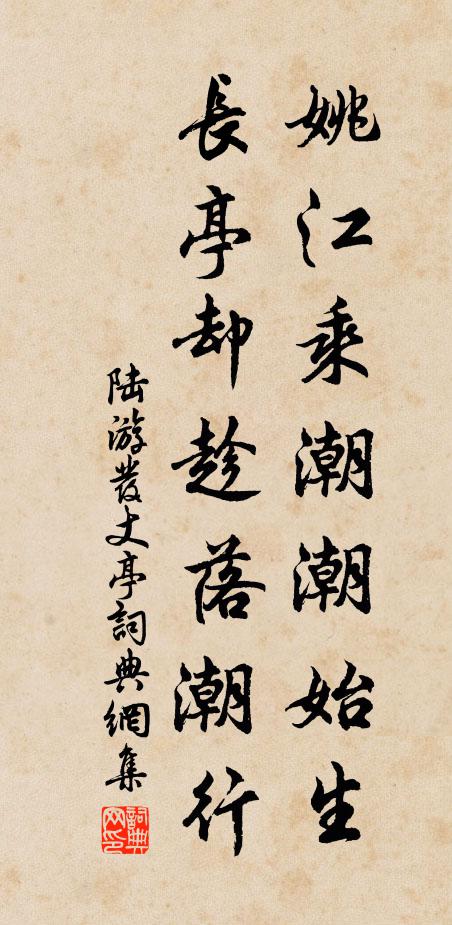 姚江乘潮潮始生
長亭却趁落潮行
陸游發丈亭詞典網集
詞典网印